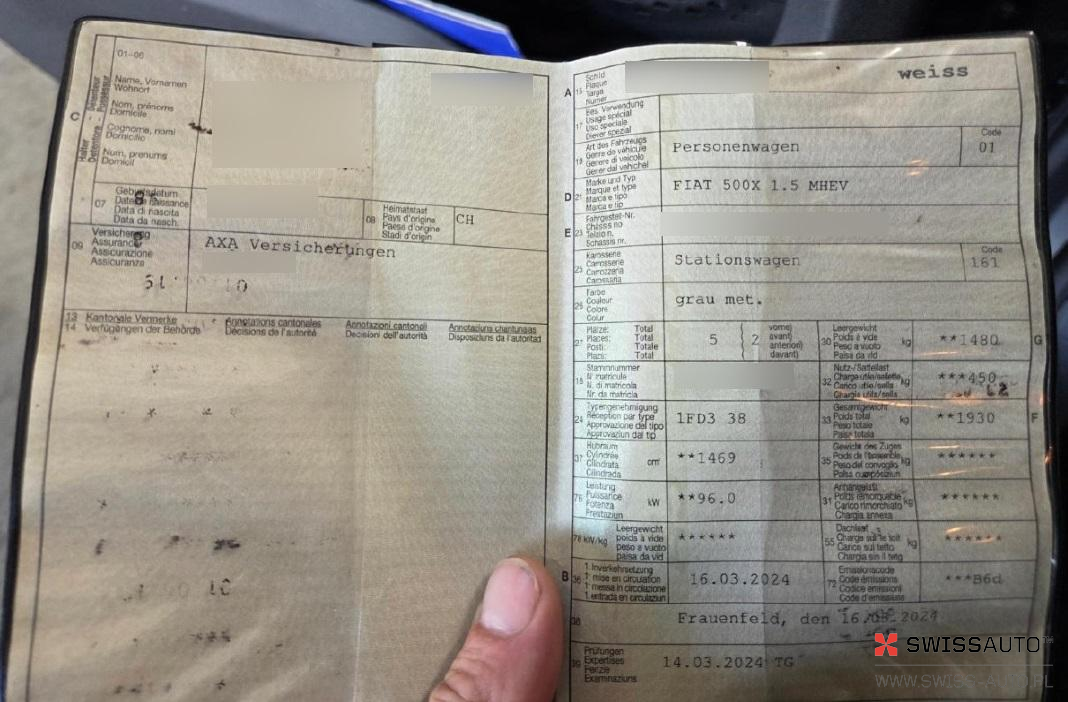 01-06
2
C
Halter
Détenteur
Detentore
Possessur
Name, Vornamen
Wohnort
Nom, prénoms
Domicile
Cognome, nomi
Domicilio
Num, prenums
Domicil
07
Geburtsdatum
Date de naissance
Data di nascita
Data da nasch.
08
Heimatstaat
Pays d'origine
Paese d'origine
Stadi d'origin
CH
09
Versicherung
Assurance
Assicurazione
Assicuranza
AXA Versicherungen
13 Kantonale Vermerke
14 Verfügungen der Behörde
Annotations cantonales
Décisions de l'autorité
Annotazioni cantonali
Decisioni dell'autorità
Annotaziuns chantunalas
Disposiziuns da l'autoritad
3
A 15
Schild
Plaque
Targa
Numer
weiss
17
Bes. Verwendung
Usage spécial
Uso speciale
Diever spezial
19
Art des Fahrzeugs
Genre de véhicule
Genere di veicolo
Gener dal vehichel
Personenwagen
Code
01
D 21
Marke und Typ
Marque et type
Marca e tipo
Marca e tip
FIAT 500X 1.5 MHEV
E 23
Fahrgestell-Nr.
Châssis no
Telaio n.
Schassis nr.
25
Karosserie
Carrosserie
Carrozzeria
Carossaria
Stationswagen
Code
161
26
Farbe
Couleur
Colore
Colur
grau met.
27
Plätze: Total
Places: Total
Posti: Totale
Plazs: Total
5 { 2
vorne)
avant)
anteriori)
davant)
30
Leergewicht
Poids à vide
Peso a vuoto
Paisa da vid
kg
**1480
G
18
Stammnummer
N° matricule
N. di matricola
Nr. da matricla
32
Nutz-/Sattellast
Charge utile/sellette
Carico utile/sella
Chargia utila/sella
kg
***450
24
Typengenehmigung
Réception par type
Approvazione del tipo
Approvaziun dal tip
1FD3 38
33
Gesamtgewicht
Poids total
Peso totale
Paisa totala
kg
**1930
F
37
Hubraum
Cylindrée
Cilindrata
Cilindrada
cm³
**1469
35
Gewicht des Zuges
Poids de l'ensemble
Peso del convoglio
Paisa cumposiziun
kg
******
76
Leistung
Puissance
Potenza
Prestaziun
kW
**96.0
31
Anhängelast
Poids remorquable
Carico rimorchiato
Chargia annexa
kg
******
78 kW/kg
Leergewicht
poids à vide
peso a vuoto
paisa da vid
******
55
Dachlast
Charge sur le toit
Carico sul tetto
Chargia sin il tetg
kg
******
B 36
1. Inverkehrsetzung
1re mise en circulation
1a messa in circolazione
1. entrada en circulaziun
16.03.2024
72
Emissionscode
Code émissions
Codice emissioni
Code d'emissiuns
***B6d
38
Frauenfeld, den 16.03.2024
39
Prüfungen
Expertises
Perizie
Examinaziuns
14.03.2024 TG
SWISSAUTO
WWW.SWISS-AUTO.PL